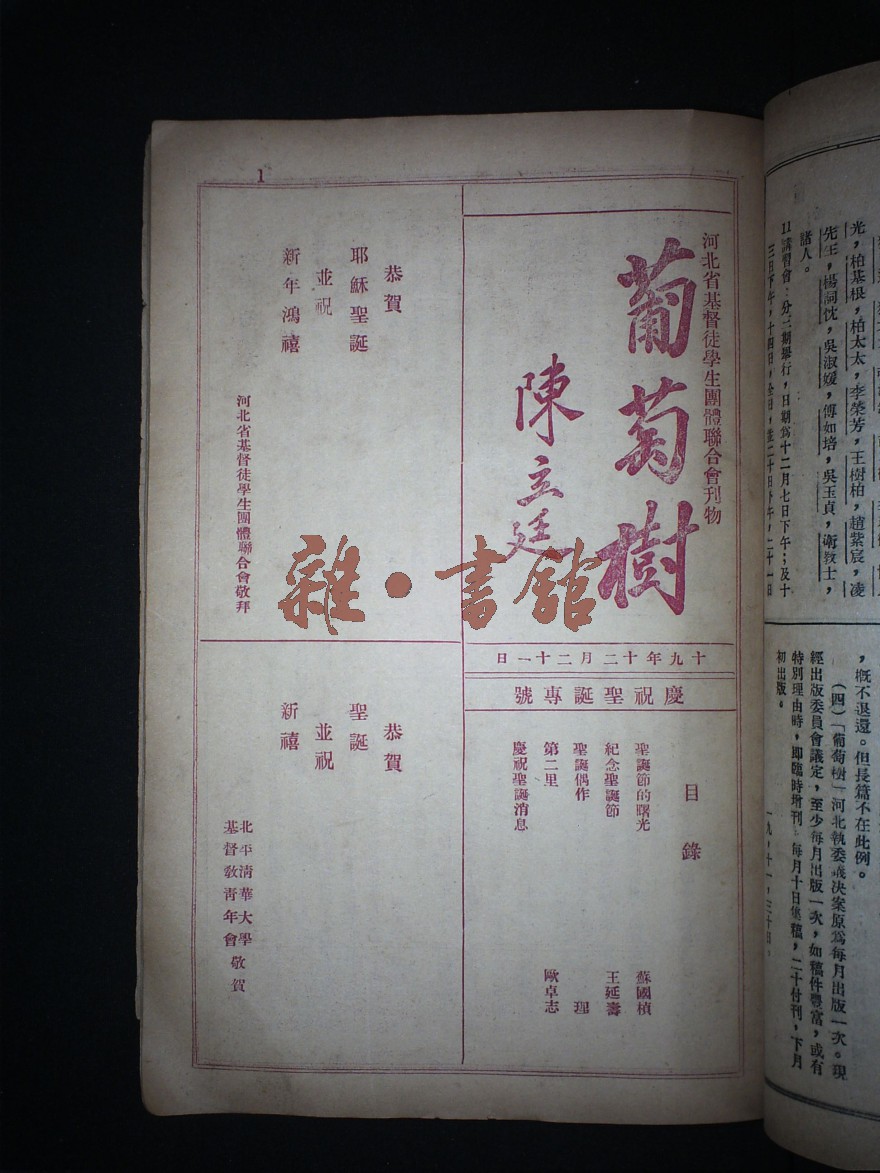 光，柏基根，柏太太，李榮芳，王樹柏，趙紫宸，凌
先生，楊詞忱，吳淑媛，傅如培，吳玉貞，衛教士，
諸人。
11講習會：分三期舉行，日期為十二月七日下午；及十
三日下午，十四日，全日，並二十日下午，二十一日
，概不退還。但長篇不在此例。
（四）「葡萄樹」河北執委議決案原爲每月出版一次。現
經出版委員會議定，至少每月出版一次，如稿件豐富，或有
特別理由時，即臨時增刊。每月十日集稿，二十付刊，下月
初出版。
一九，十一，三十日。
1
河北省基督徒學生團體聯合會刊物
葡萄樹
陳立廷
十九年十二月二十一日
慶祝聖誕專號
目錄
聖誕節的曙光 蘇國楨
紀念聖誕節 王延壽
聖誕偶作 理
第二里 歐卓志
慶祝聖誕消息
恭賀
耶穌聖誕
並祝
新年鴻禧
河北省基督徒學生團體聯合會敬拜
恭賀
聖誕
並祝
新禧
北平清華大學
基督教青年會敬賀
雜·書館